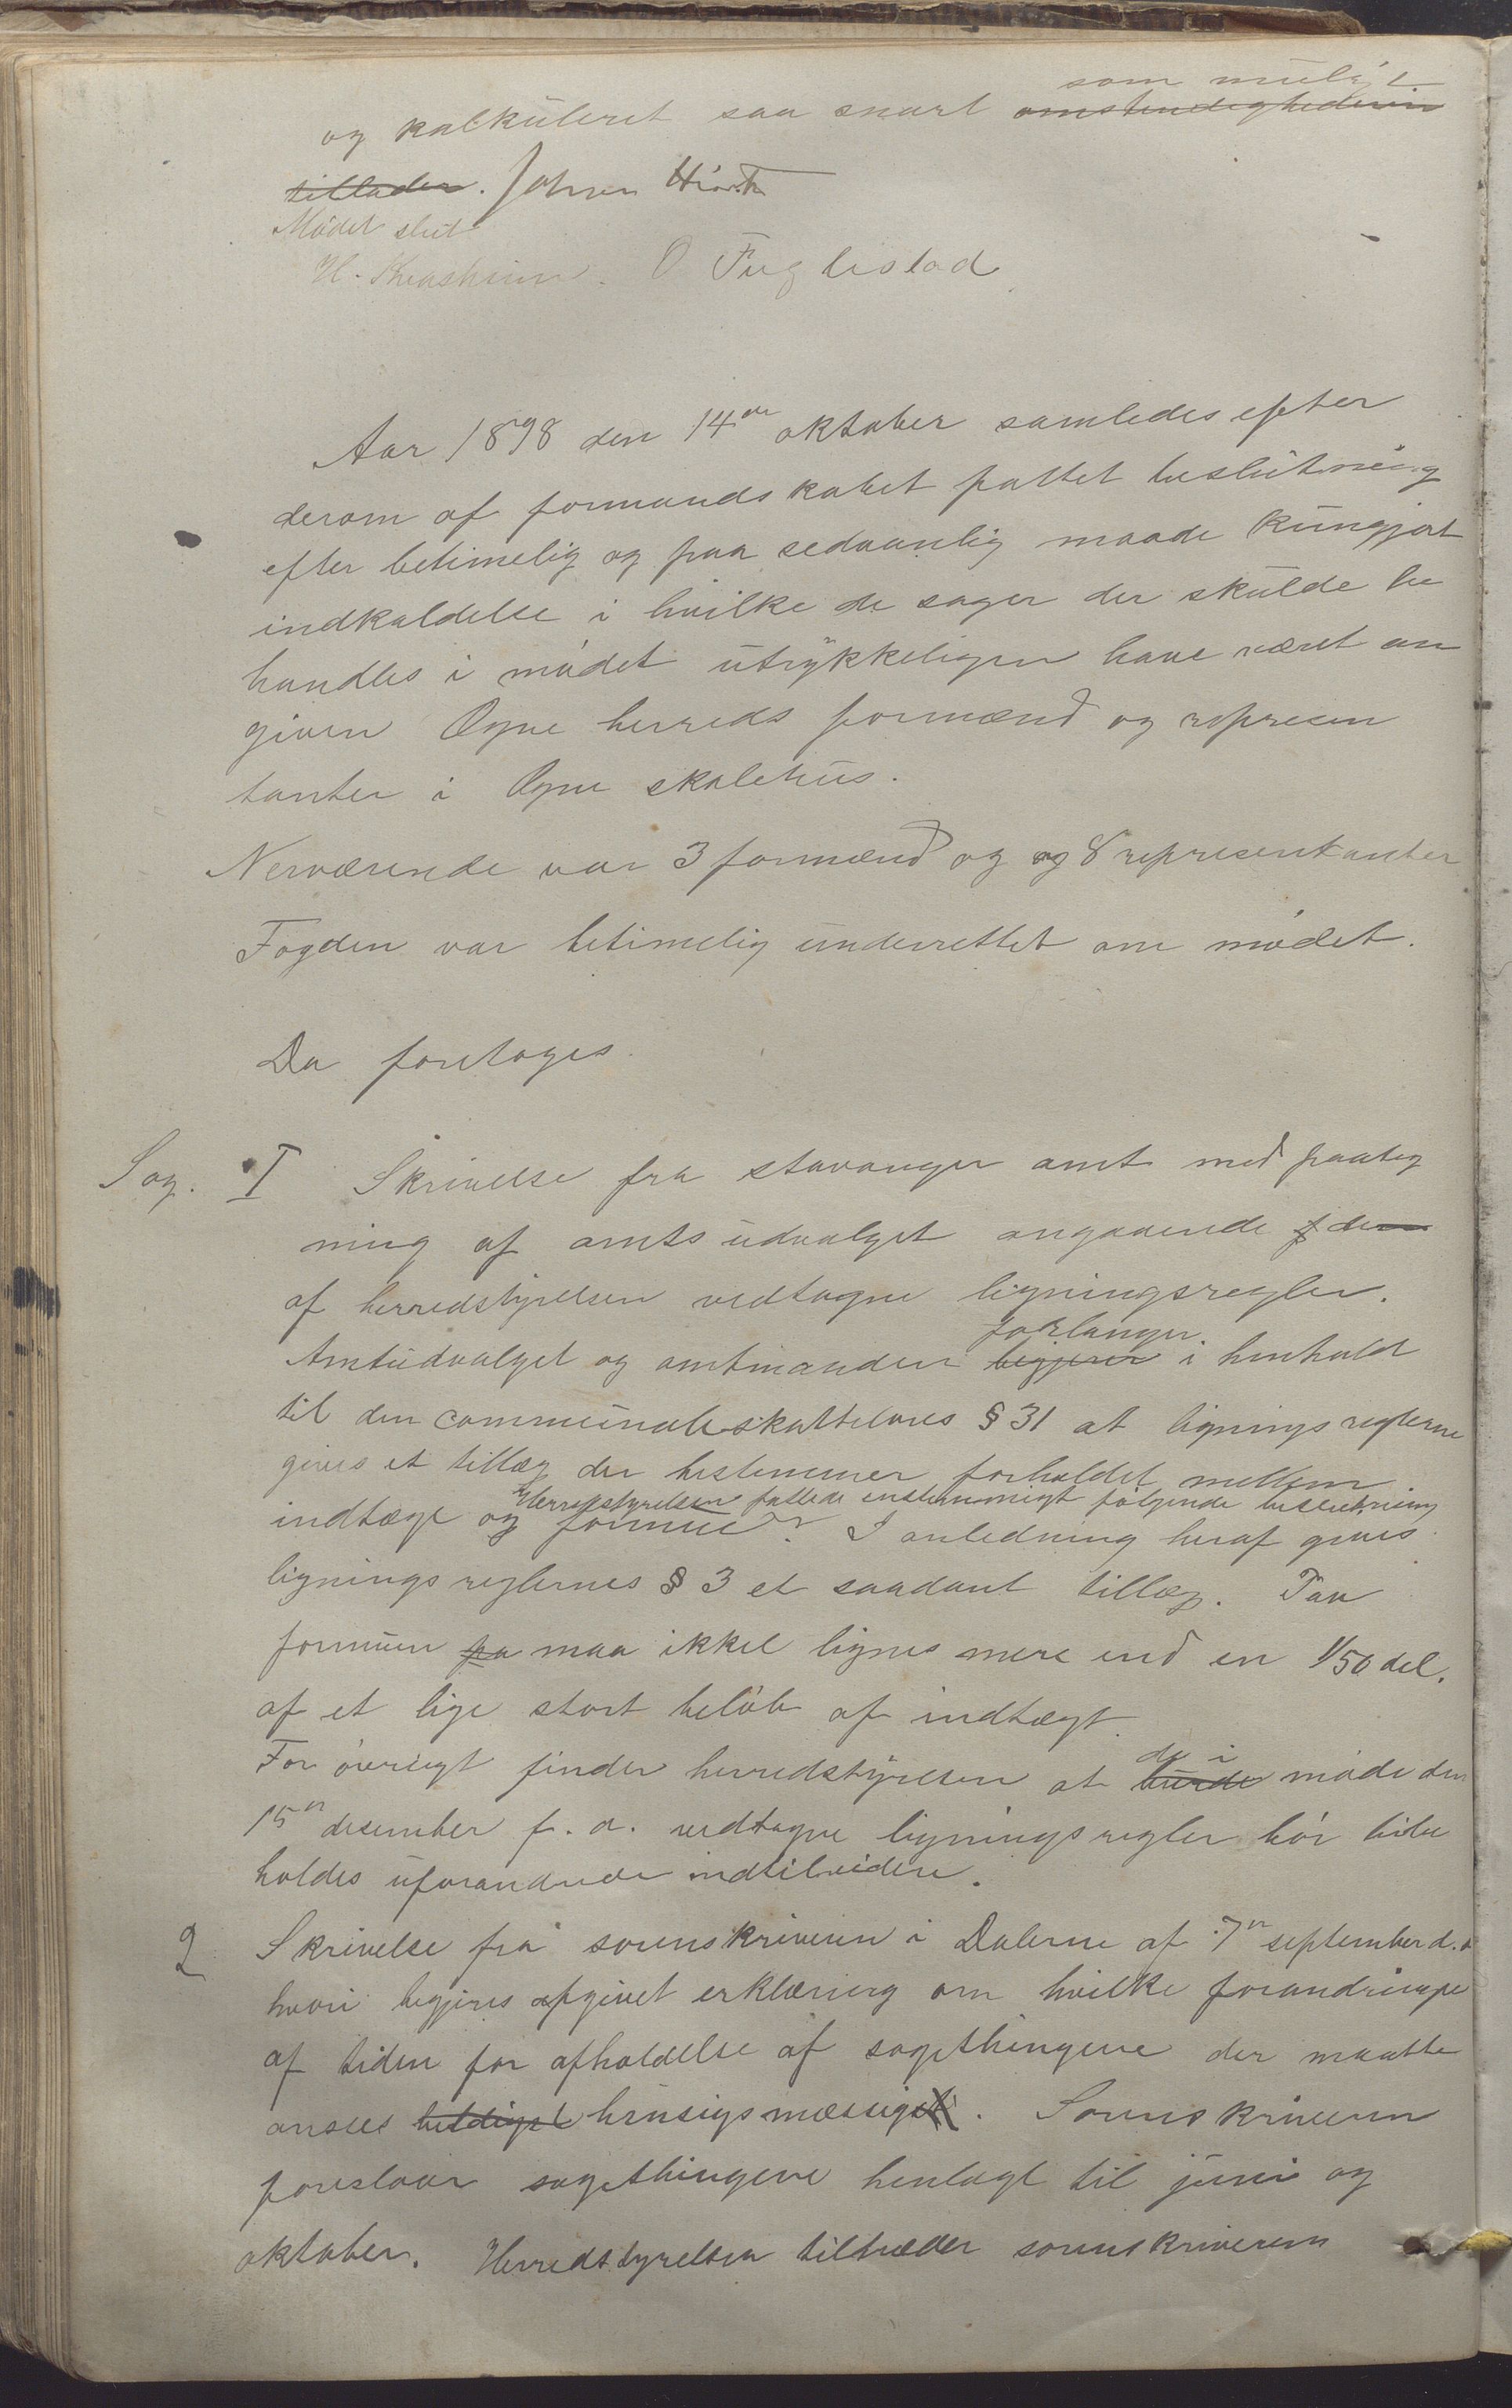 som muligt
og kalkuleret saa snart omstendighederne
tillader. Johan Hiorth
Mödet slut
H. O Fuglestad
Aar 1898 den 14de oktober samledes efter
derom af formandskabet fattet beslutning
efter betimelig og paa sedvanlig maade kungjort
indkaldelse i hvilke de sager der skulde be
handles i mödet utrykkeligen have været an
given Ogne herreds formænd og represen
tanter i Ogne skolehus.
Nerværende var 3 formænd og og 8 representanter
Fogden var betimelig underrettet om mödet.
Da foretoges
Sag. I Skrivelse fra stavanger amt med paateg
ning af amtsudvalget angaaende f den
af herredstyrelsen vedtagne ligningsregler.
forlanger.
Amtudvalget og amtmanden begjerer i henhold
til den communale skattelovs § 31 at ligningsreglerne
gives et tillæg der bestemmer forholdet mellem
Herredstyrelsen fattede enstemmigt fölgende beslutning
indtægt og formue. I anledning heraf gives
ligningsreglernes § 3 et saadant tillæg. Paa
formuen pa maa ikkel lignes mere end en 1/50 del.
af et lige stort belöb af indtægt.
de i
For övrigt finder herredstyrelsen at burde möde den
15n desember f. a. vedtagne ligningsregler bör bibe
holdes uforandrede indtilvidere.
2 Skrivelse fra sorenskriveren i Dalerne af 7n september d. a
hvori begjeres afgivet erklæring om hvilke forandringe
af tiden for afholdelse af sagethingene der maatte
ansees heldigst hensigsmæssigst. Sorenskriveren
foreslaar sagethingene henlagt til juni og
oktober. Herredstyrelsen tiltræder sorenskriverens